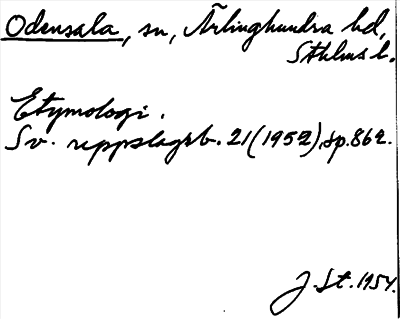 Odensala, sn, Ärlinghundra hd,
Sthlms l.
Etymologi.
Sv. uppslagsb. 21 (1952), sp. 862.
J. St. 1954.